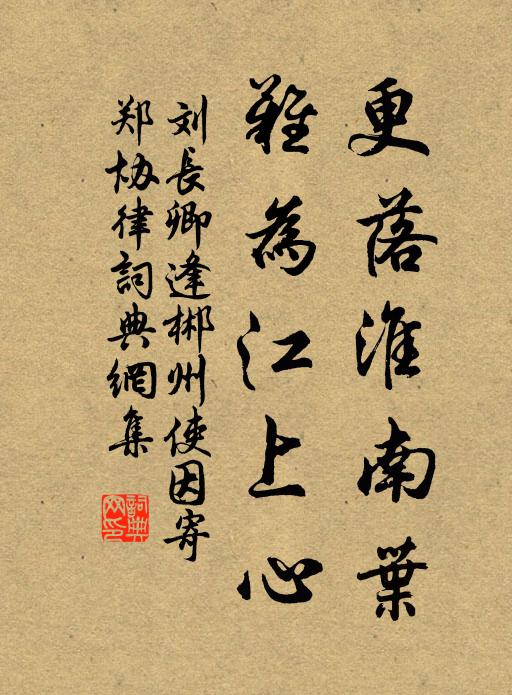 更落淮南葉
難為江上心
刘長卿逢郴州使因寄
郑协律詞典網集
詞典網印